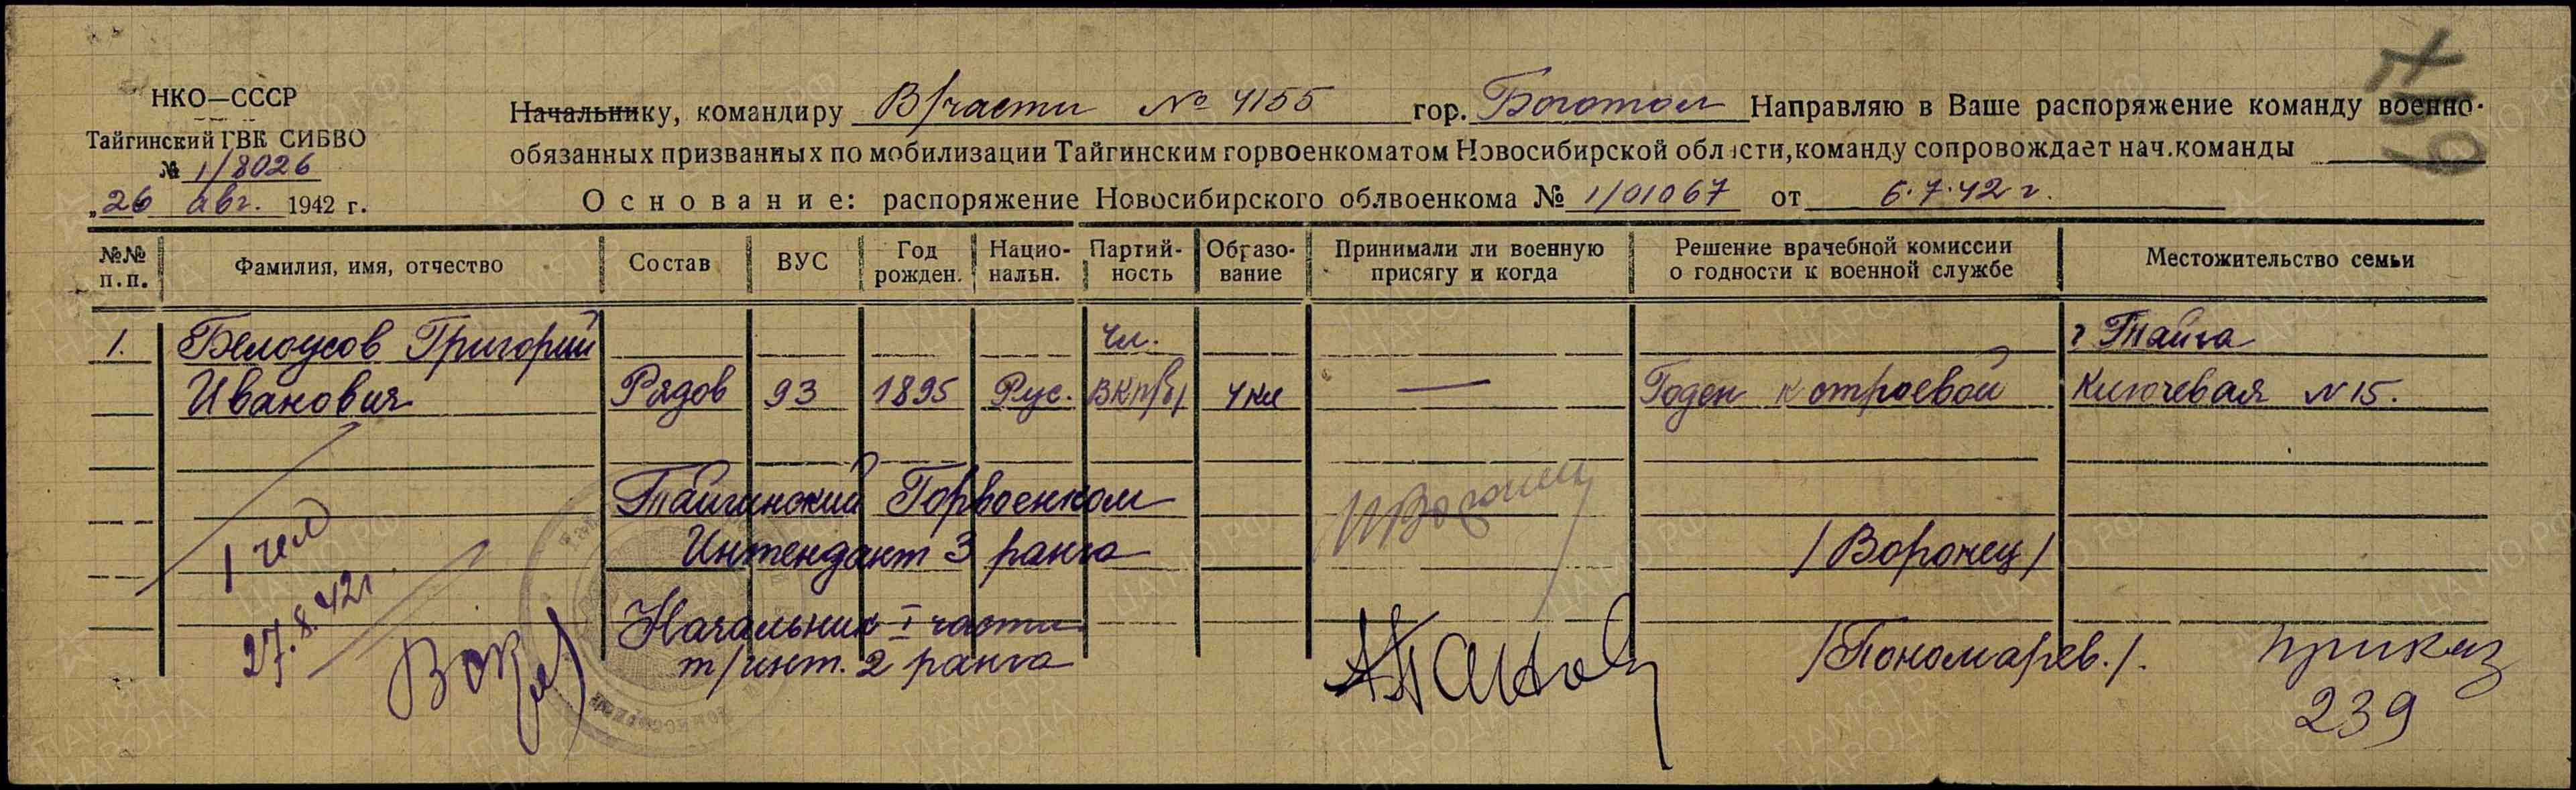 НКО—СССР
Тайгинский ГВК СИБВО
№ 1/8026
„26 авг. 1942 г.
Начальнику, командиру В/части № 4155 гор. Боготол Направляю в Ваше распоряжение команду военно-
обязанных призванных по мобилизации Тайгинским горвоенкоматом Новосибирской области, команду сопровождает нач. команды
Основание: распоряжение Новосибирского облвоенкома № 1/01067 от 6.7.42 г.
№№ п.п. Фамилия, имя, отчество Состав ВУС Год рожден. Нацио-нальн. Партий-ность Образо-вание Принимали ли военную присягу и когда Решение врачебной комиссии о годности к военной службе Местожительство семьи
1. Белоусов Григорий чл. г Тайга
Иванович Рядов 93 1895 Рус. ВКП/б/ 4 кл — Годен к строевой Ключевая N 15.
Тайгинский Горвоенком
Интендант 3 ранга /Воронец/
1 чел
27.8.42г
Начальник I части
т/инт. 2 ранга /Пономарев./.
приказ
239
ПАМЯТЬ НАРОДА
ЦАМО.РФ